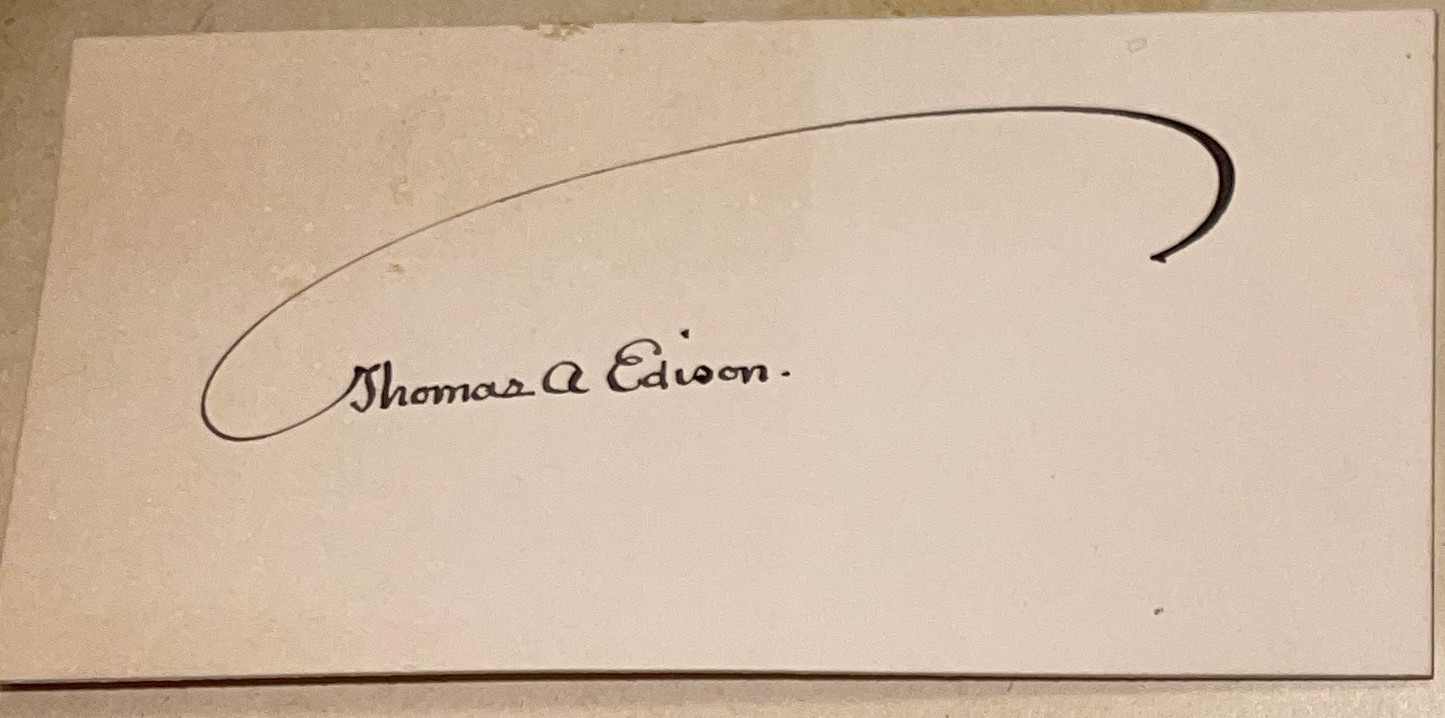 Thomas A Edison.